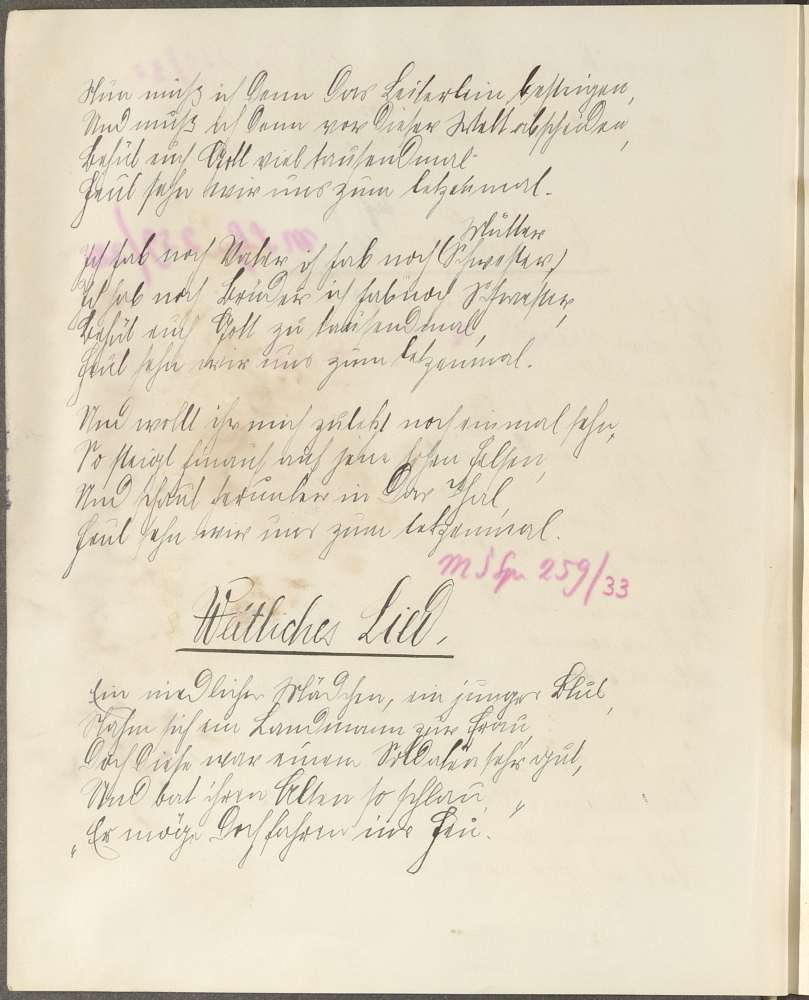 Nun muß ich denn das Leiterlein besteigen,
Und muß ich denn von dieser Welt abscheiden,
Behüt euch Gott viel tausendmal
Heut sehn wir uns zum letzenmal.
Mutter
Ich hab noch Vater ich hab noch (Schwester)
Ich hab noch Brüder ich hab noch Schwester,
Behüt euch Gott zu tausendmal,
Heut sehn wir uns zum letzenmal.
Und wollt ihr mich zuletzt noch einmal sehn,
So steigt hinauf auf jene hohen Felsen,
Und schaut herunter in das Thal,
Heut sehn wir uns zum letzenmal.
259/33
Weltliches Lied.
Ein niedliches Mädchen, ein junges Blut,
Nahm sich ein Landmann zur Frau,
Doch diese war einem Soldaten sehr gut,
Und bat ihren Alten so schlau,
„Er möge doch fahren ins Heu.“